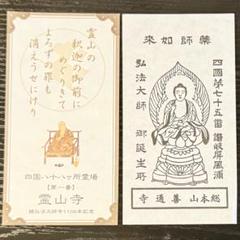 霊山の
釈迦の御前に
めぐりきて
よろずの罪も
消えうせにけり
四国八十八ヶ所霊場
【第一番】
霊山寺
來如師藥
四國第七十五番讃岐屏風浦
弘法大師 御誕生所
寺通善 山本総